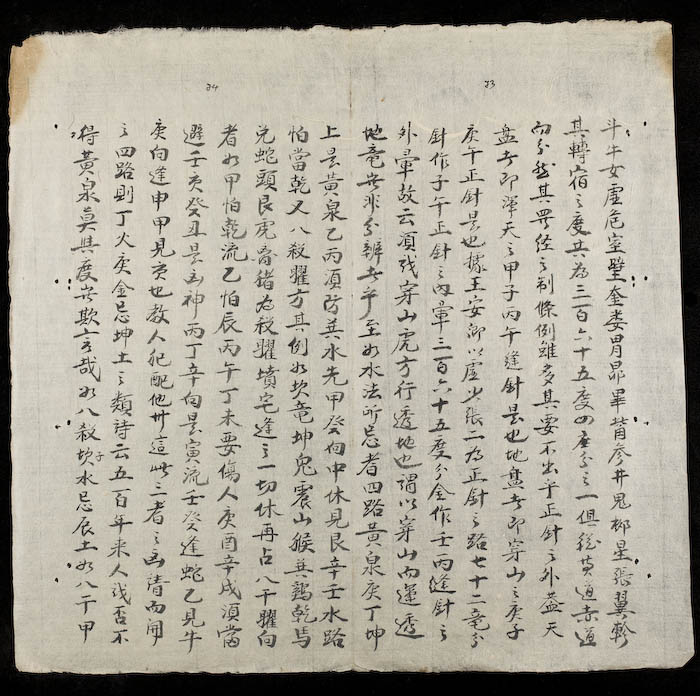 23
24
斗牛女虛危室壁奎娄胃昴畢觜参井鬼柳星張翼軫
其轉宿之度共為三百六十五度四左分之一俱繞黃道赤道
而分然其界経之制條例雖多其要不出乎正針之外蓋天
盤者即渾天之甲子丙午縫針是也地盤者即穿山之庚子
庚午正針是也據王安卿以虛少張二為正針之路七十二竜分
針作子午正針之内暈三百六十五度分金作壬丙縫針之
外暈故云須找穿山虎方行透地也謂以穿山而運透
地竜豈非分辨者乎至如水法所忌者四路黃泉庚丁坤
上是黃泉乙丙須防巽水先甲癸向中休見艮辛壬水路
怕當乾又八殺曜方其例如坎竜坤兔震山猴巽鷄乾馬
兌蛇頭艮虎离猪為殺曜墳宅逢之一切休再占八干曜向
者如甲怕乾流乙怕辰丙午丁未要傷人庚酉辛戌須當
避壬亥癸丑是凶神丙丁辛向是寅流壬癸逢蛇乙見牛
庚向逢申甲見亥也教人犯配他州這此三者之凶清而聞
之四路則丁火庚金忌坤土之類詩云五百年来人找否不
得黃泉真其度豈欺言哉如八殺坎子水忌辰土如八干甲